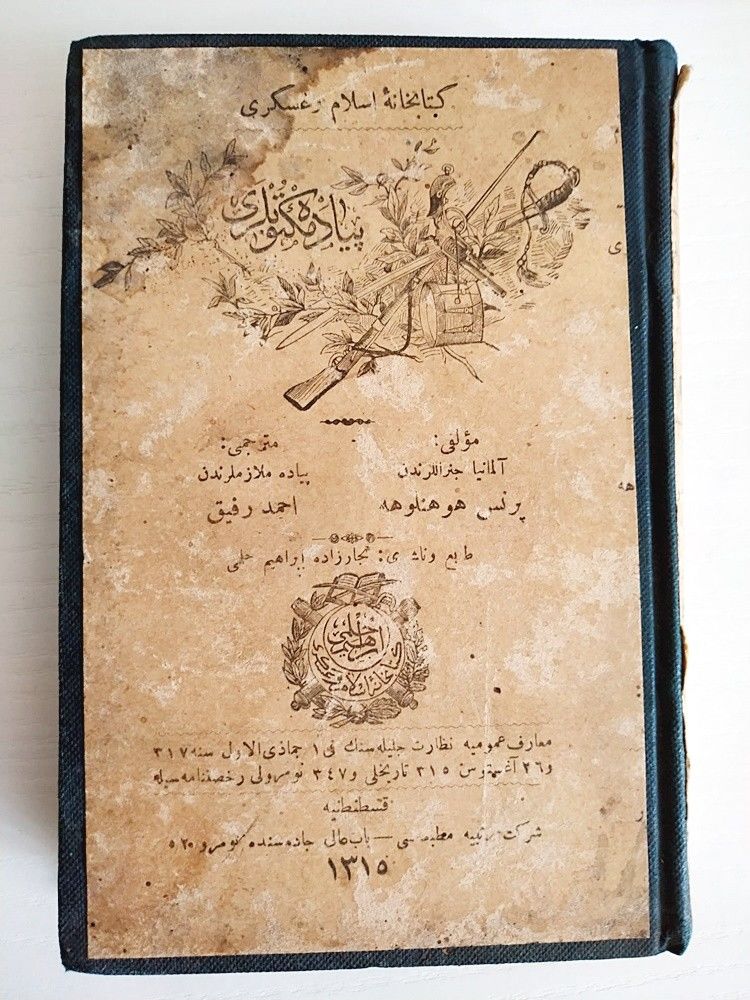 كتابخانهٔ اسلام وعسكری
پیاده مكتوبلری
مؤلفی:
آلمانیا جنراللرندن
پرنس هوهنلوهه
مترجمی:
پیاده ملازملرندن
احمد رفیق
طابع وناشری: تجارزاده ابراهیم حلمی
ابراهیم حلمی
كتابخانهٔ اسلام وعسكری
معارف عمومیه نظارت جلیله‌سنك فی ١ جماذی الاول سنه ٣١٧
و٢٦ آغستوس ٣١٥ تاریخلی و٣٤٧ نومرولی رخصتنامه‌سیله
قسطنطنیه
شركت مرتبیه مطبعه‌سی — باب عالی جاده‌سنده نومرو ٥٢
١٣١٥